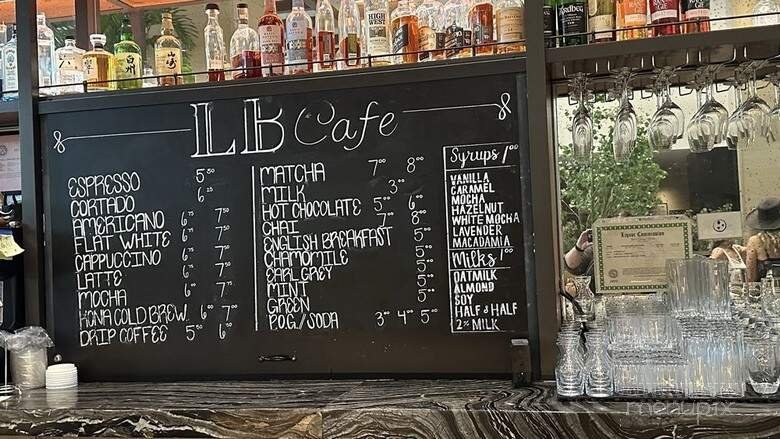 LB Cafe
ESPRESSO 5⁵⁰
CORTADO 6²⁵
AMERICANO 6⁷⁵ 7⁵⁰
FLAT WHITE 6⁷⁵ 7⁵⁰
CAPPUCCINO 6⁷⁵ 7⁵⁰
LATTE 6⁷⁵ 7⁵⁰
MOCHA 6⁷⁵ 7⁵⁰
KONA COLD BREW 6⁰⁰ 7⁰⁰
DRIP COFFEE 5⁰⁰ 6⁰⁰
MATCHA 7⁰⁰ 8⁰⁰
MILK 3⁰⁰
HOT CHOCOLATE 5⁰⁰ 6⁰⁰
CHAI 7⁰⁰ 8⁰⁰
ENGLISH BREAKFAST 5⁰⁰
CHAMOMILE 5⁰⁰
EARL GREY 5⁰⁰
MINT 5⁰⁰
GREEN 5⁰⁰
P.O.G./SODA 3⁰⁰ 4⁰⁰ 5⁰⁰
Syrups/1⁰⁰
VANILLA
CARAMEL
MOCHA
HAZELNUT
WHITE MOCHA
LAVENDER
MACADAMIA
Milks/1⁰⁰
OATMILK
ALMOND
SOY
HALF & HALF
2% MILK
Liquor Commission
menupix